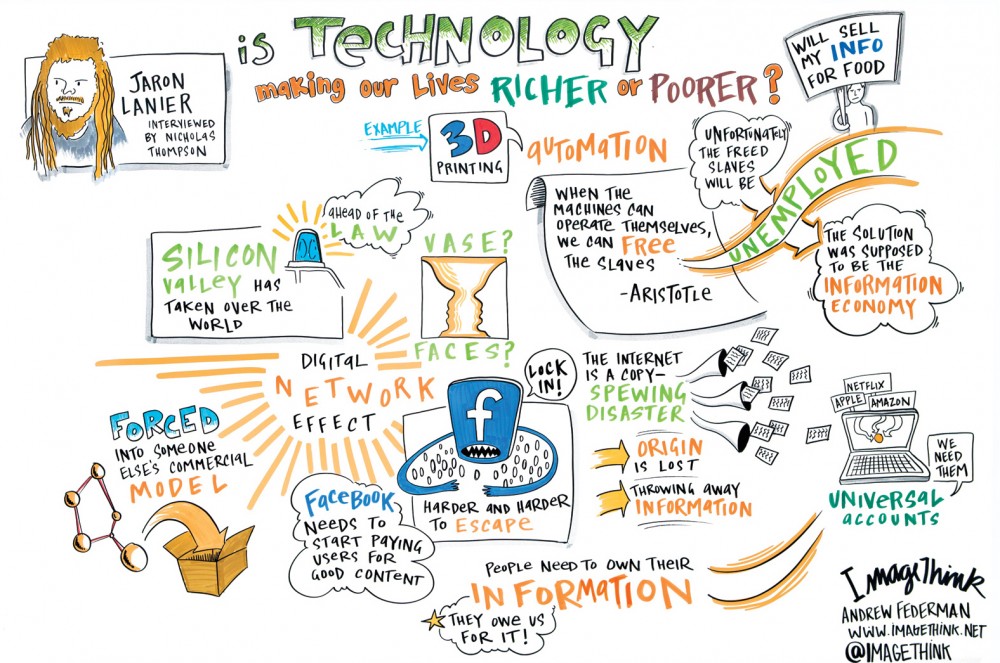 is TECHNOLOGY
making our Lives RICHER or POORER?
JARON
LANIER
INTERVIEWED
BY NICHOLAS
THOMPSON
WILL SELL
MY INFO
FOR FOOD
EXAMPLE
3D
PRINTING
AUTOMATION
UNFORTUNATELY
THE FREED
SLAVES
WILL BE
UNEMPLOYED
WHEN THE
MACHINES CAN
OPERATE THEMSELVES,
WE CAN FREE
THE SLAVES
-ARISTOTLE
THE SOLUTION
WAS SUPPOSED
TO BE THE
INFORMATION
ECONOMY
AHEAD OF THE
LAW
SILICON
VALLEY HAS
TAKEN OVER THE
WORLD
VASE?
FACES?
DIGITAL
NETWORK
EFFECT
LOCK
IN!
f
HARDER AND HARDER
TO ESCAPE
THE INTERNET
IS A COPY-
SPEWING
DISASTER
ORIGIN
IS LOST
THROWING AWAY
INFORMATION
NETFLIX
APPLE
AMAZON
WE
NEED
THEM
UNIVERSAL
ACCOUNTS
FORCED
INTO SOMEONE
ELSE'S COMMERCIAL
MODEL
FACEBOOK
NEEDS TO
START PAYING
USERS FOR
GOOD CONTENT
PEOPLE NEED TO OWN THEIR
INFORMATION
THEY OWE US
FOR IT!
ImageThink
ANDREW FEDERMAN
WWW.IMAGETHINK.NET
@IMAGETHINK